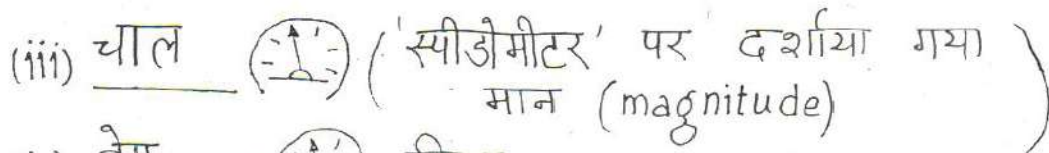 (iii) चाल ('स्पीडोमीटर' पर दर्शाया गया
मान (magnitude))